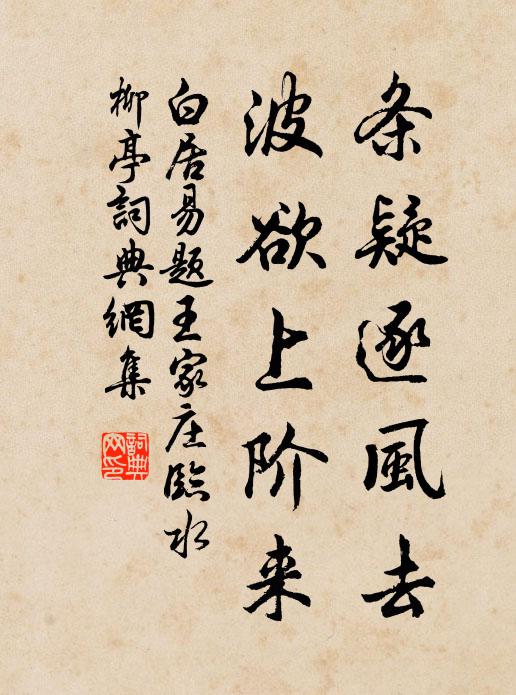 条疑逐風去
波欲上阶来
白居易題王家庄臨水
柳亭詞典網集
詞典網印